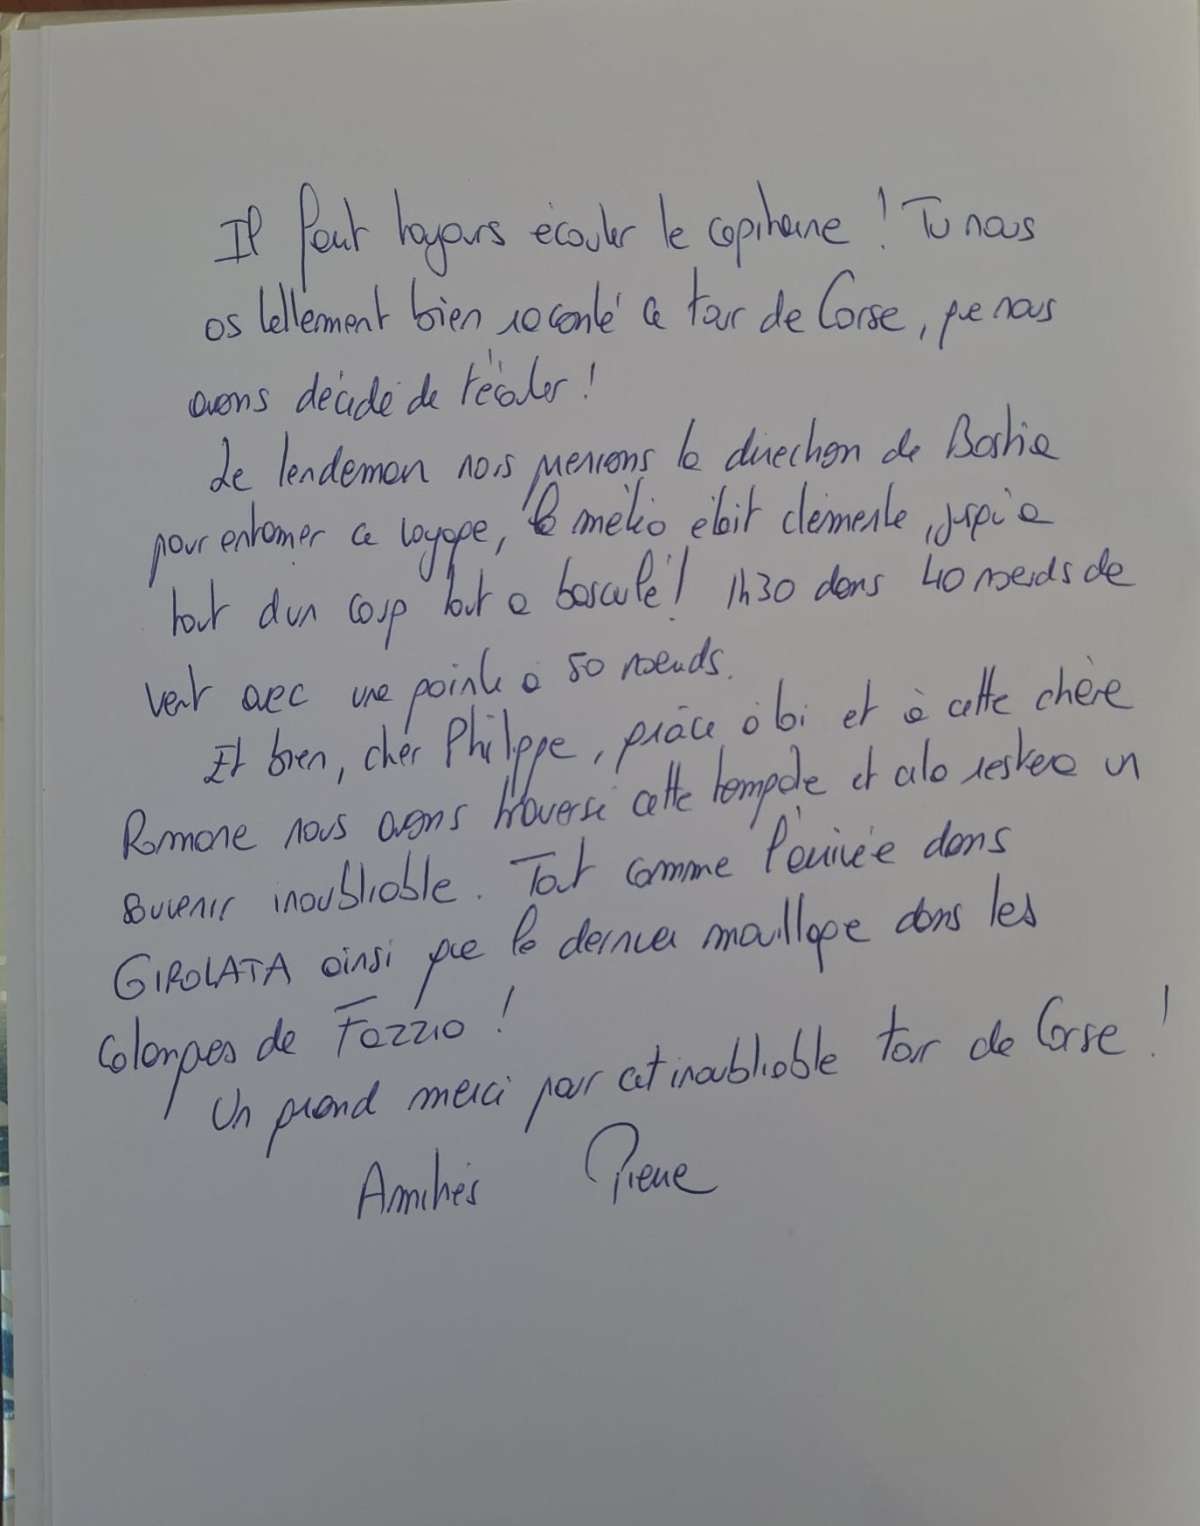 Il faut toujours écouter le capitaine ! Tu nous
as tellement bien raconté ce tour de Corse, que nous
avons décidé de t'écouter !
Le lendemain nous prenions la direction de Bastia
pour entamer ce voyage, la météo était clémente, jusqu'à
tout d'un coup tout a basculé ! 1h30 dans 40 nœuds de
vent avec une pointe à 50 nœuds.
Et bien, cher Philippe, grâce à toi et à cette chère
Romane nous avons traversé cette tempête et cela restera un
souvenir inoubliable. Tout comme l'arrivée dans
GIROLATA ainsi que le dernier mouillage dans les
calanques de Fazzio !
Un grand merci pour cet inoubliable tour de Corse !
Amitiés Pierre